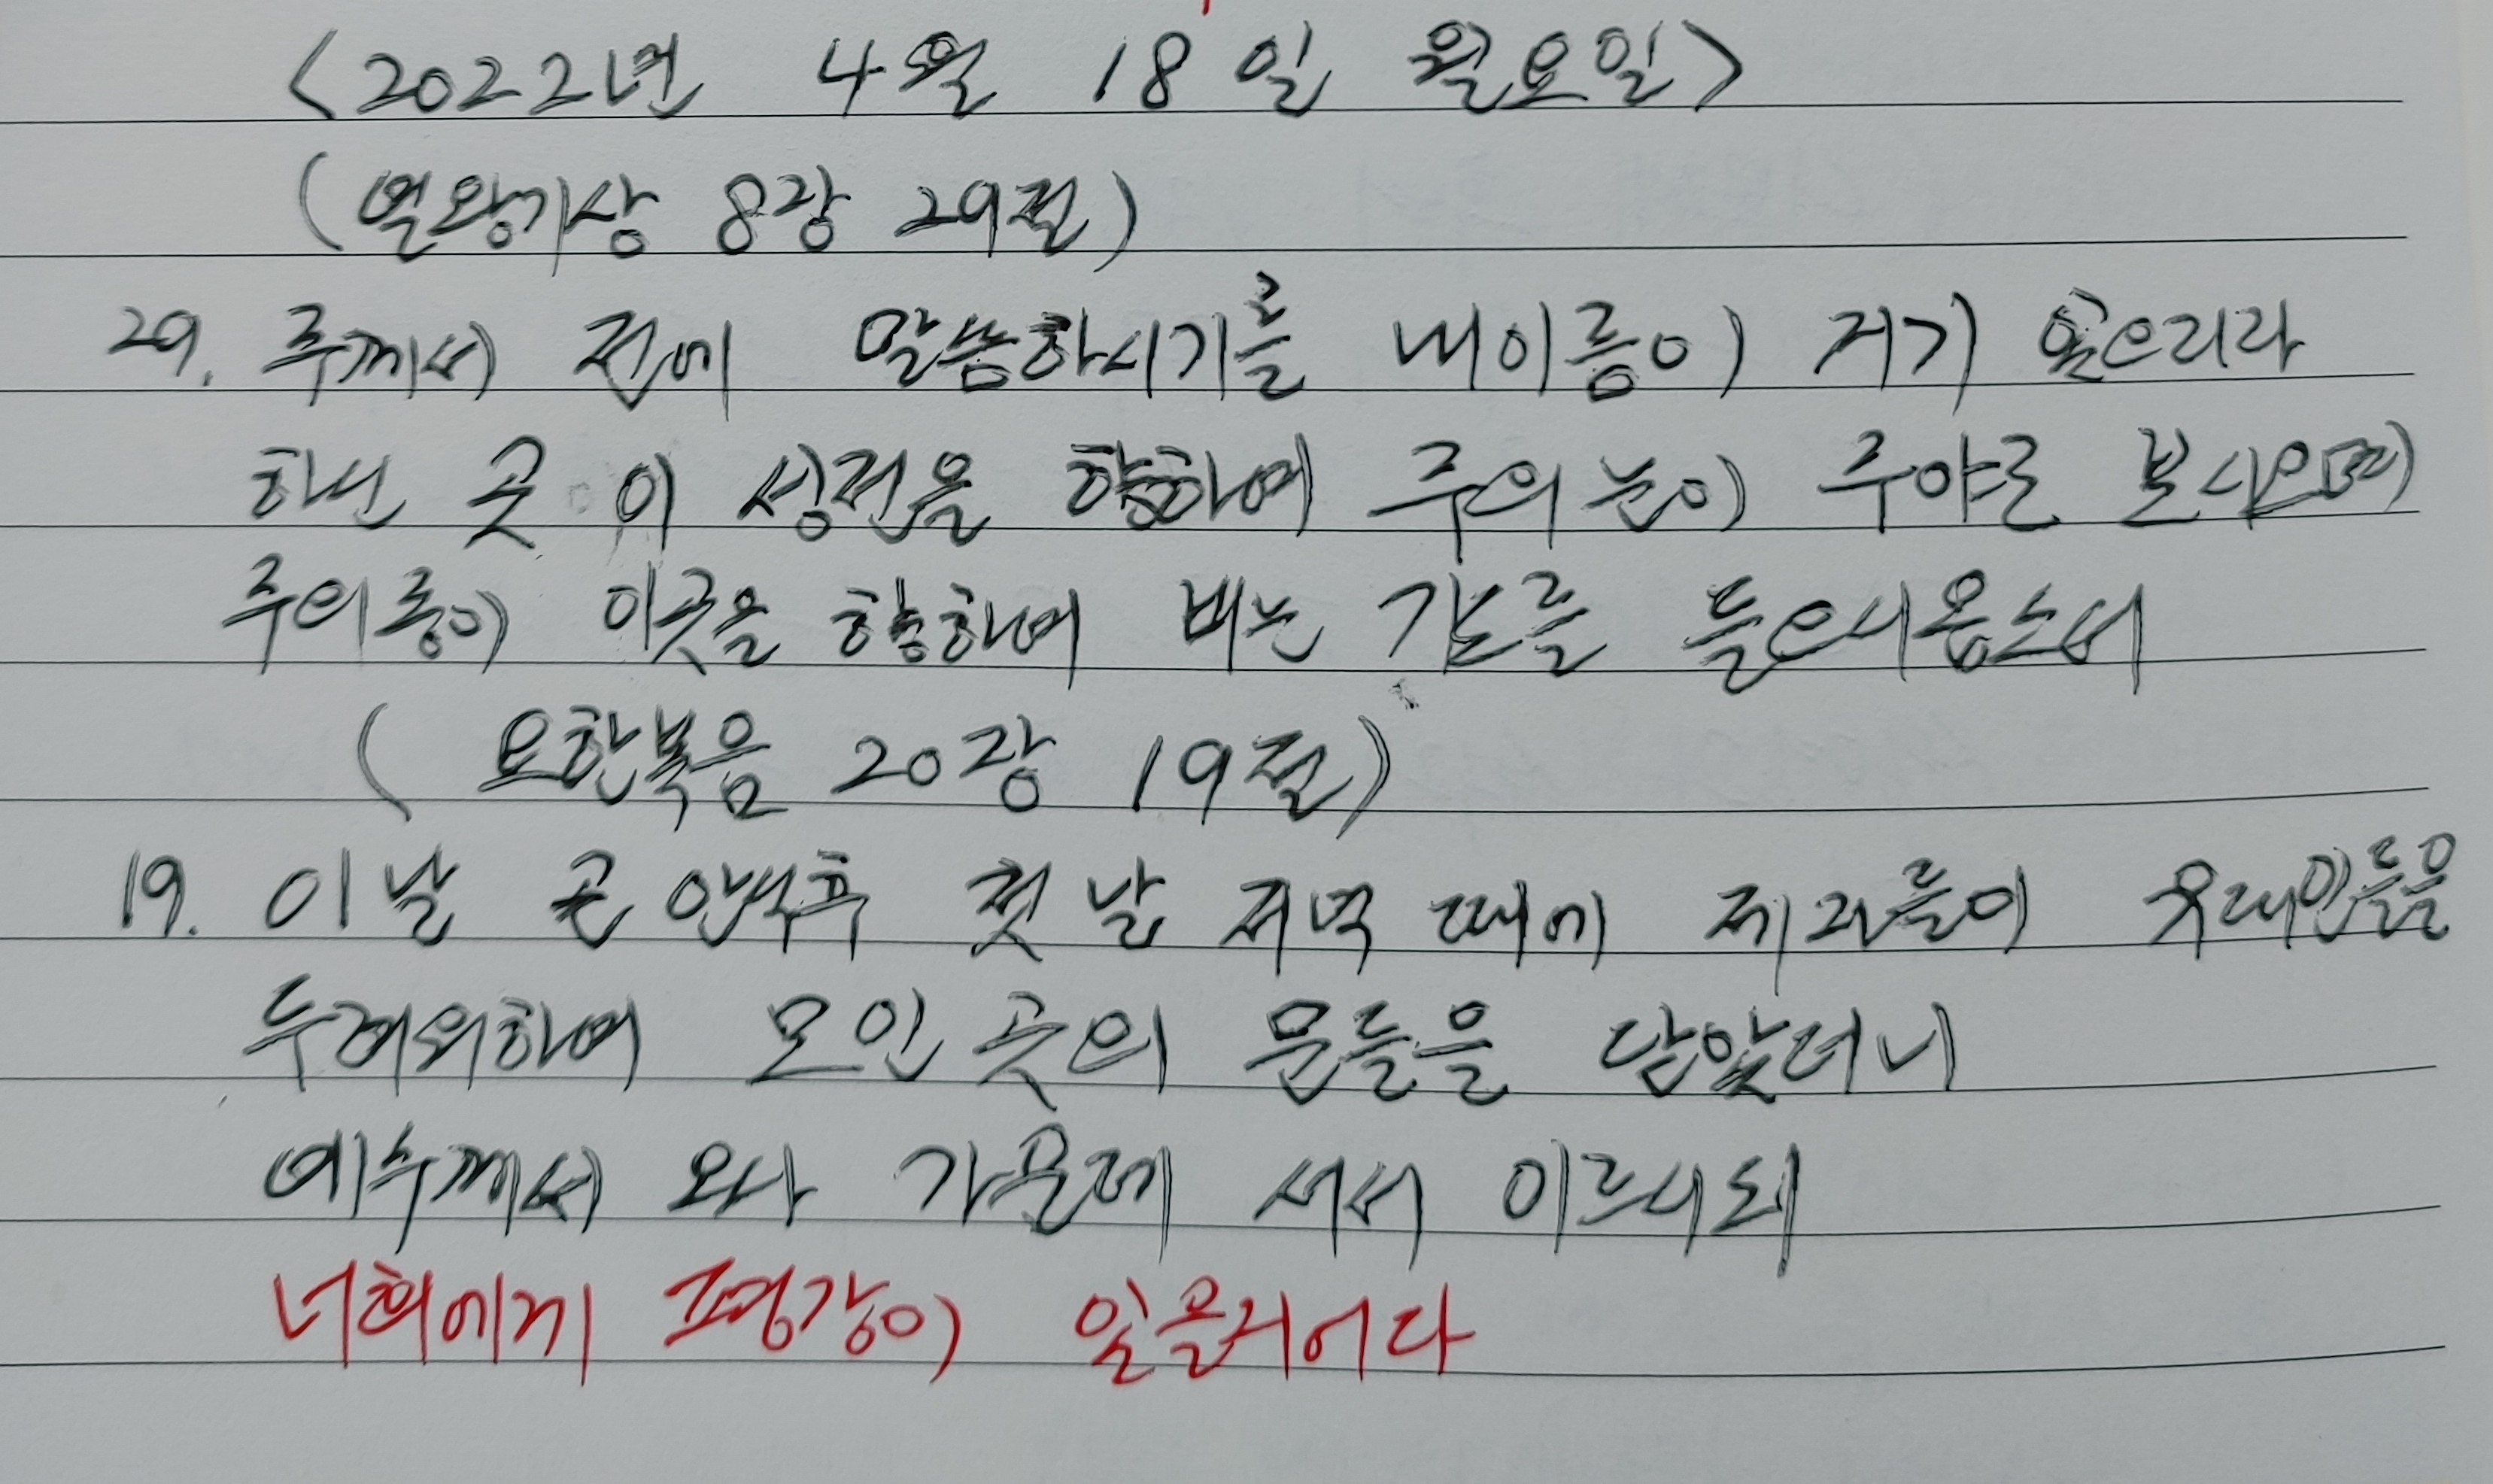 <2022년 4월 18일 월요일>
(열왕기상 8장 29절)
29. 주께서 전에 말씀하시기를 내이름이 거기 있으리라
하신 곳 이 성전을 향하여 주의 눈이 주야로 보시오며
주의종이 이곳을 향하여 비는 기도를 들으시옵소서
(요한복음 20장 19절)
19. 이날 곧 안식후 첫날 저녁 때에 제자들이 유대인들을
두려워하여 모인 곳의 문들을 닫았더니
예수께서 오사 가운데 서서 이르시되
너희에게 평강이 있을지어다